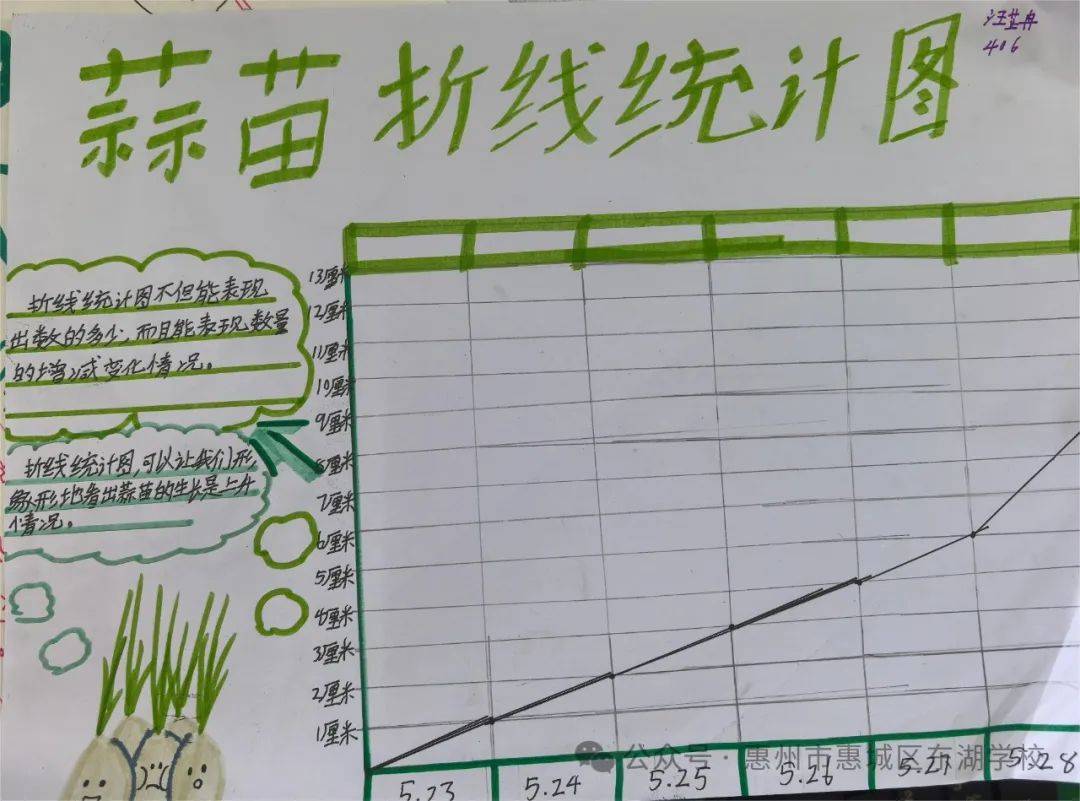 蒜苗折线统计图
汪芷冉
406
折线统计图不但能表现
出数的多少,而且能表现数量
的增减变化情况。
折线统计图,可以让我们形
象形地看出蒜苗的生长是上升
情况。
13厘米
12厘米
11厘米
10厘米
9厘米
8厘米
7厘米
6厘米
5厘米
4厘米
3厘米
2厘米
1厘米
5.23 5.24 5.25 5.26 5.27 5.28
公众号·惠州市惠城区东湖学校